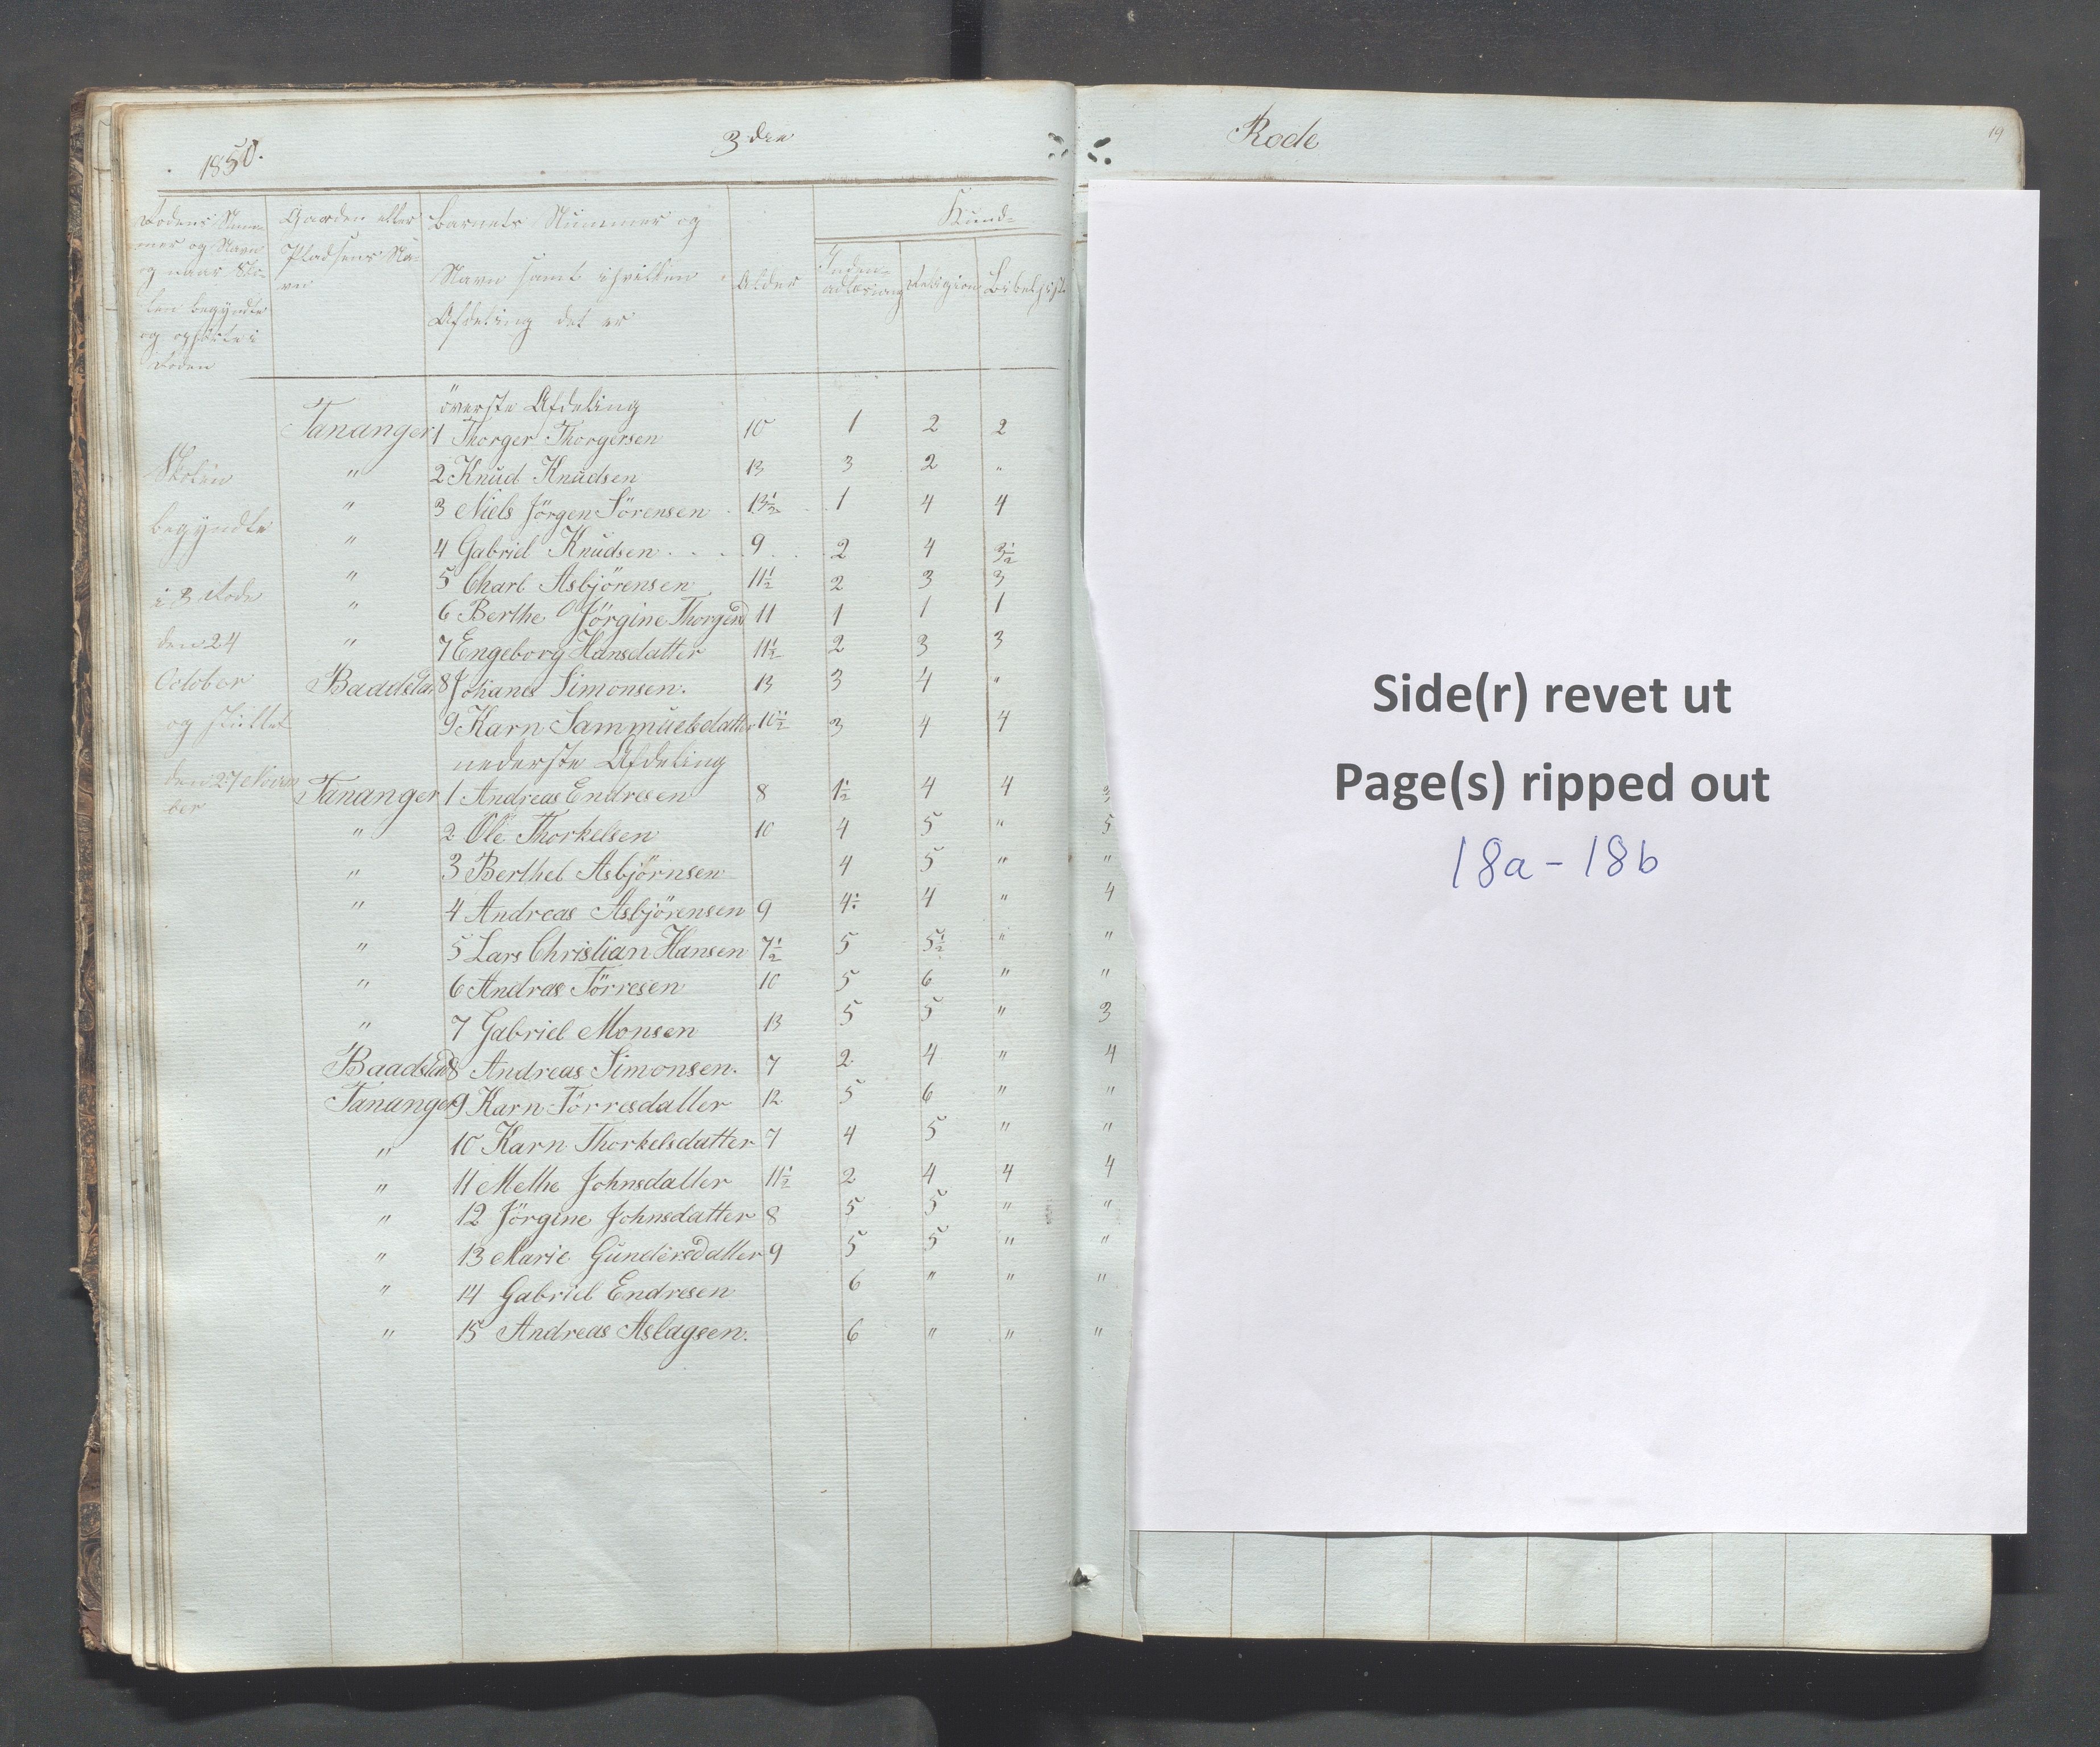 1850.
3 den
Rode
19
Rodens Num-
mer og Navn
og naar Sko-
len begyndte
og ophörte i
Roden
Gaarden eller
Pladsens Na-
vn
Barnets Nummer og
Navn samt i hvilken
Afdeling det er
Alder
Kund-
Inden-
adlæsning
Religion
Bibelhist.
överste Afdeling
Tananger 1 Thorger Thorgersen 10 1 2 2
Skolen " 2 Knud Knudsen 13 3 2 "
begyndte " 3 Niels Jörgen Sörensen 13½ 1 4 4
" 4 Gabriel Knudsen 9 2 4 3½
i 3 Rode " 5 Charl Asbjörensen 11½ 2 3 3
" 6 Berthe Jörgine Thorgersd 11 1 1 1
den 24 " 7 Engeborg Hansdatter 11½ 2 3 3
October Baadstad 8 Johanes Simonsen. 13 3 4 "
og sluttet 9 Karn Sammuelsdatter 10½ 3 4 4
nederste Afdeling
den 27 Novem
ber
Tananger 1 Andreas Endresen 8 1½ 4 4 3
" 2 Ole Thorkelsen 10 4 5 " 5
" 3 Berthel Asbjörnsen 4 5 " "
" 4 Andreas Asbjörensen 9 4½ 4 " 4
" 5 Lars Christian Hansen 7½ 5 5½ " "
" 6 Andras Törresen 10 5 6 " "
" 7 Gabriel Monsen 13 5 5 " 3
Baadstad 8 Andreas Simonsen. 7 2 4 " 4
Tananger 9 Karn Törresdatter 12 5 6 " "
" 10 Karn Thorkelsdatter 7 4 5 " "
" 11 Methe Johnsdatter 11½ 2 4 4 4
" 12 Jörgine Johnsdatter 8 5 5 " "
" 13 Marie Gundersdatter 9 5 5 " "
" 14 Gabriel Endresen 6 " " "
" 15 Andreas Aslagsen. 6 " " "
Side(r) revet ut
Page(s) ripped out
18a - 18b